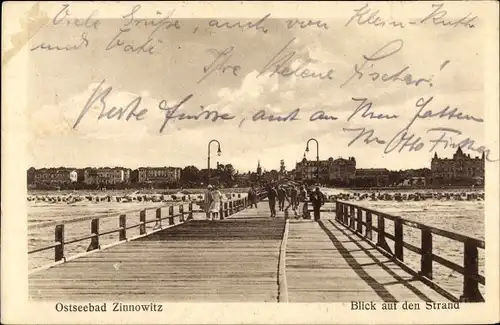 Viele Grüße, auch von Klein-Ruth
und Vati
Ihre Helene Fischer!
Beste Grüße, auch an Ihren Gatten
Ihr Otto Fischer
Ostseebad Zinnowitz
Blick auf den Strand